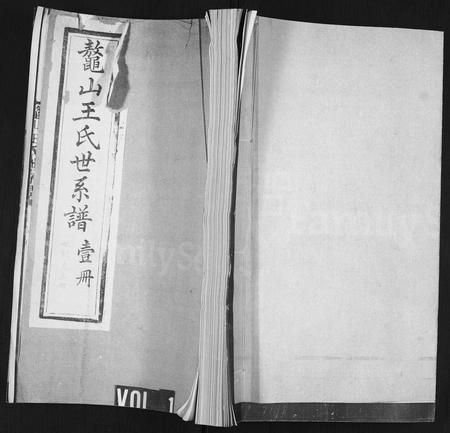 鼇山王氏世系譜 壹冊
VOL 1